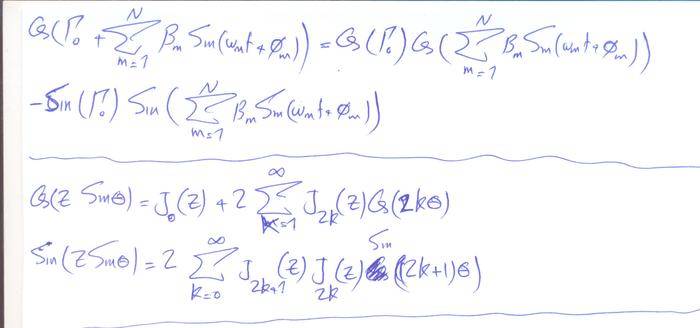 Cos(Γ₀ + ∑_{m=1}^{N} β_m Sin(ω_m t + ϕ_m)) = Cos(Γ₀) Cos(∑_{m=1}^{N} β_m Sin(ω_m t + ϕ_m))
-Sin(Γ₀) Sin(∑_{m=1}^{N} β_m Sin(ω_m t + ϕ_m))
Cos(Z Sinθ) = J₀(Z) + 2 ∑_{k=1}^{∞} J_{2k}(Z) Cos(2kθ)
Sin(Z Sinθ) = 2 ∑_{k=0}^{∞} J_{2k+1}(Z) J_{2k}(Z) Sin((2k+1)θ)